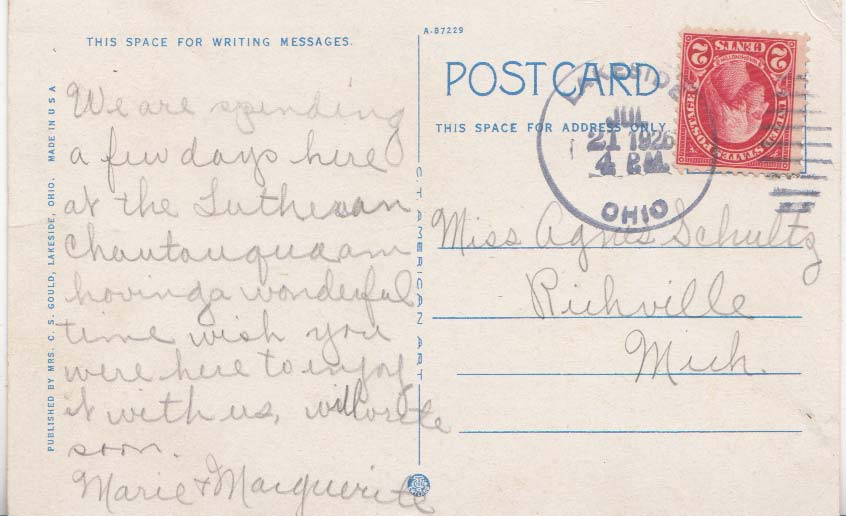 A-87229
THIS SPACE FOR WRITING MESSAGES.
POST CARD
THIS SPACE FOR ADDRESS ONLY
LAKESIDE
JUL
21 1926
4 P.M.
OHIO
2 CENTS 2
WASHINGTON
UNITED STATES POSTAGE
We are spending
a few days here
at the Lutheran
Chautauqua am
having a wonderful
time wish you
were here to enjoy
it with us, will write
soon.
Marie & Marguerite
Miss Agnes Schultz
Richville
Mich.
PUBLISHED BY MRS. C. S. GOULD, LAKESIDE, OHIO. MADE IN U S A
C. T. AMERICAN ART